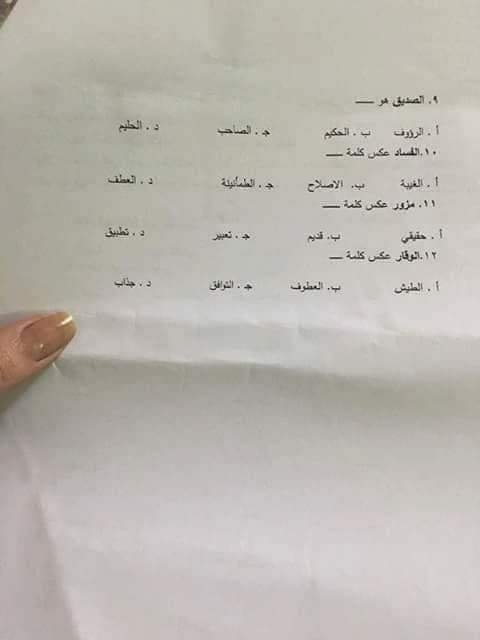 ٩. الصديق هو ___
أ . الرؤوف ب . الحكيم جـ . الصاحب د . الحليم
١٠.الفساد عكس كلمة ___
أ . الغيبة ب. الاصلاح جـ . الطمأنينة د . العطف
١١. مزور عكس كلمة ___
أ . حقيقي ب. قديم جـ . تعبير د . تطبيق
١٢.الوقار عكس كلمة ___
أ . الطيش ب. العطوف جـ . التوافق د . جذاب